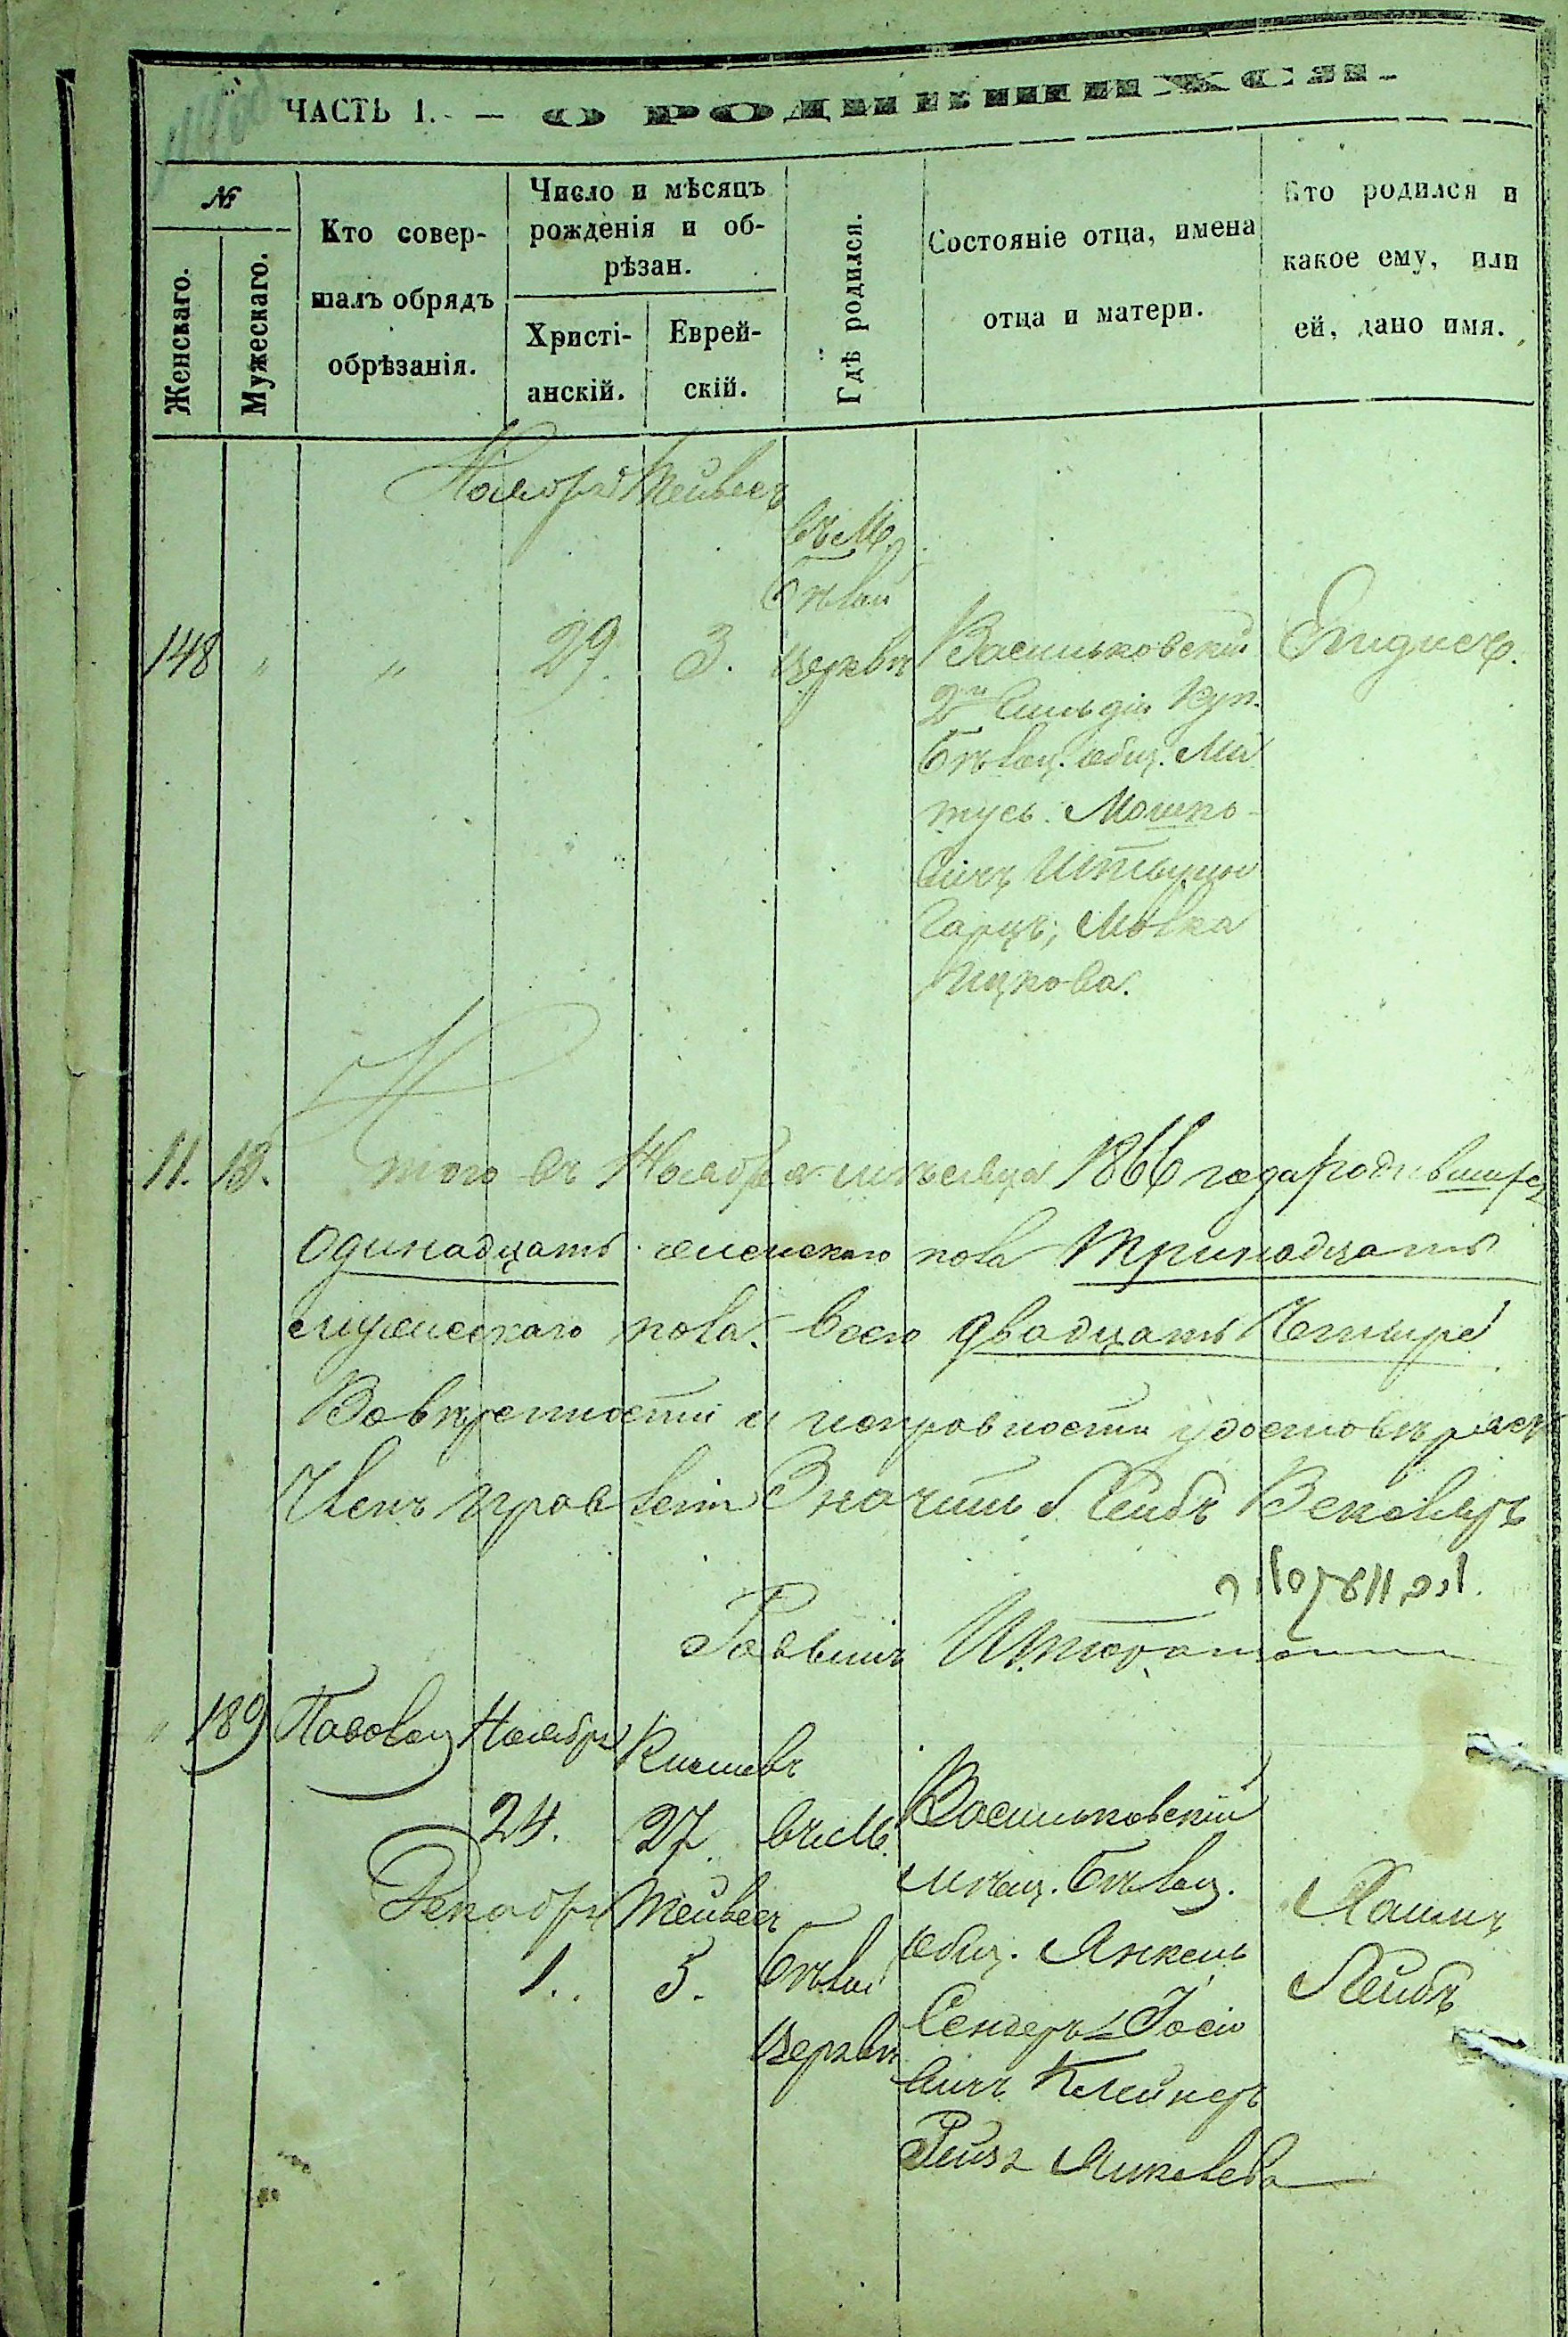 ЧАСТЬ I. — О РОДИВШИХСЯ.
№
Женскаго.
Мужескаго.
Кто совер-
шалъ обрядъ
обрѣзанія.
Число и мѣсяцъ
рожденія и об-
рѣзан.
Христі-
анскій.
Еврей-
скій.
Гдѣ родился.
Состояніе отца, имена
отца и матери.
Кто родился и
какое ему, или
ей, дано имя.
Ноября Тейвесъ
148 " " 29. 3.
въ М.
Бѣлой
Церкви
Васильковскій
2й Гильдіи Куп.
Бѣлоц. общ. Ма
тусь Мошко-
вичъ
Гарцъ, Малка
Ицкова.
11. 13. Итого въ Ноябрѣ мѣсяца 1866 года родившихся
одинадцать женскаго пола тринадцать
мужескаго пола. всего двадцать четыре
Въ вѣрности и исправности удостовѣряемъ
Членъ правленія Лейбъ
Раввинъ
" 189 Ноября Кислевъ
24. 27.
Декабря Тейвесъ
1. 5.
въ М.
Бѣлой
Церкви
Васильковскій
мѣщ. Бѣлоц.
общ. Янкель
Сендеръ Іосіо
вичъ Клейнеръ
Рейзя Янкелева
Хаимъ
Лейбъ